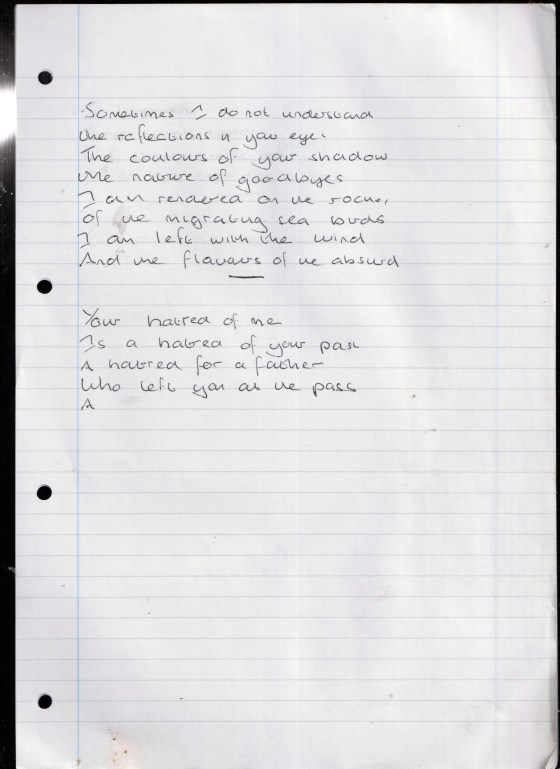 Sometimes I do not understand
the reflections in your eyes
The coulours of your shadow
the nature of goodbyes
I am rendered on the rocks,
of the migrating sea birds
I am left with the wind
And the flavours of the absurd
Your hatred of me
Is a hatred of your past
A hatred for a father
Who left you as he pass
A